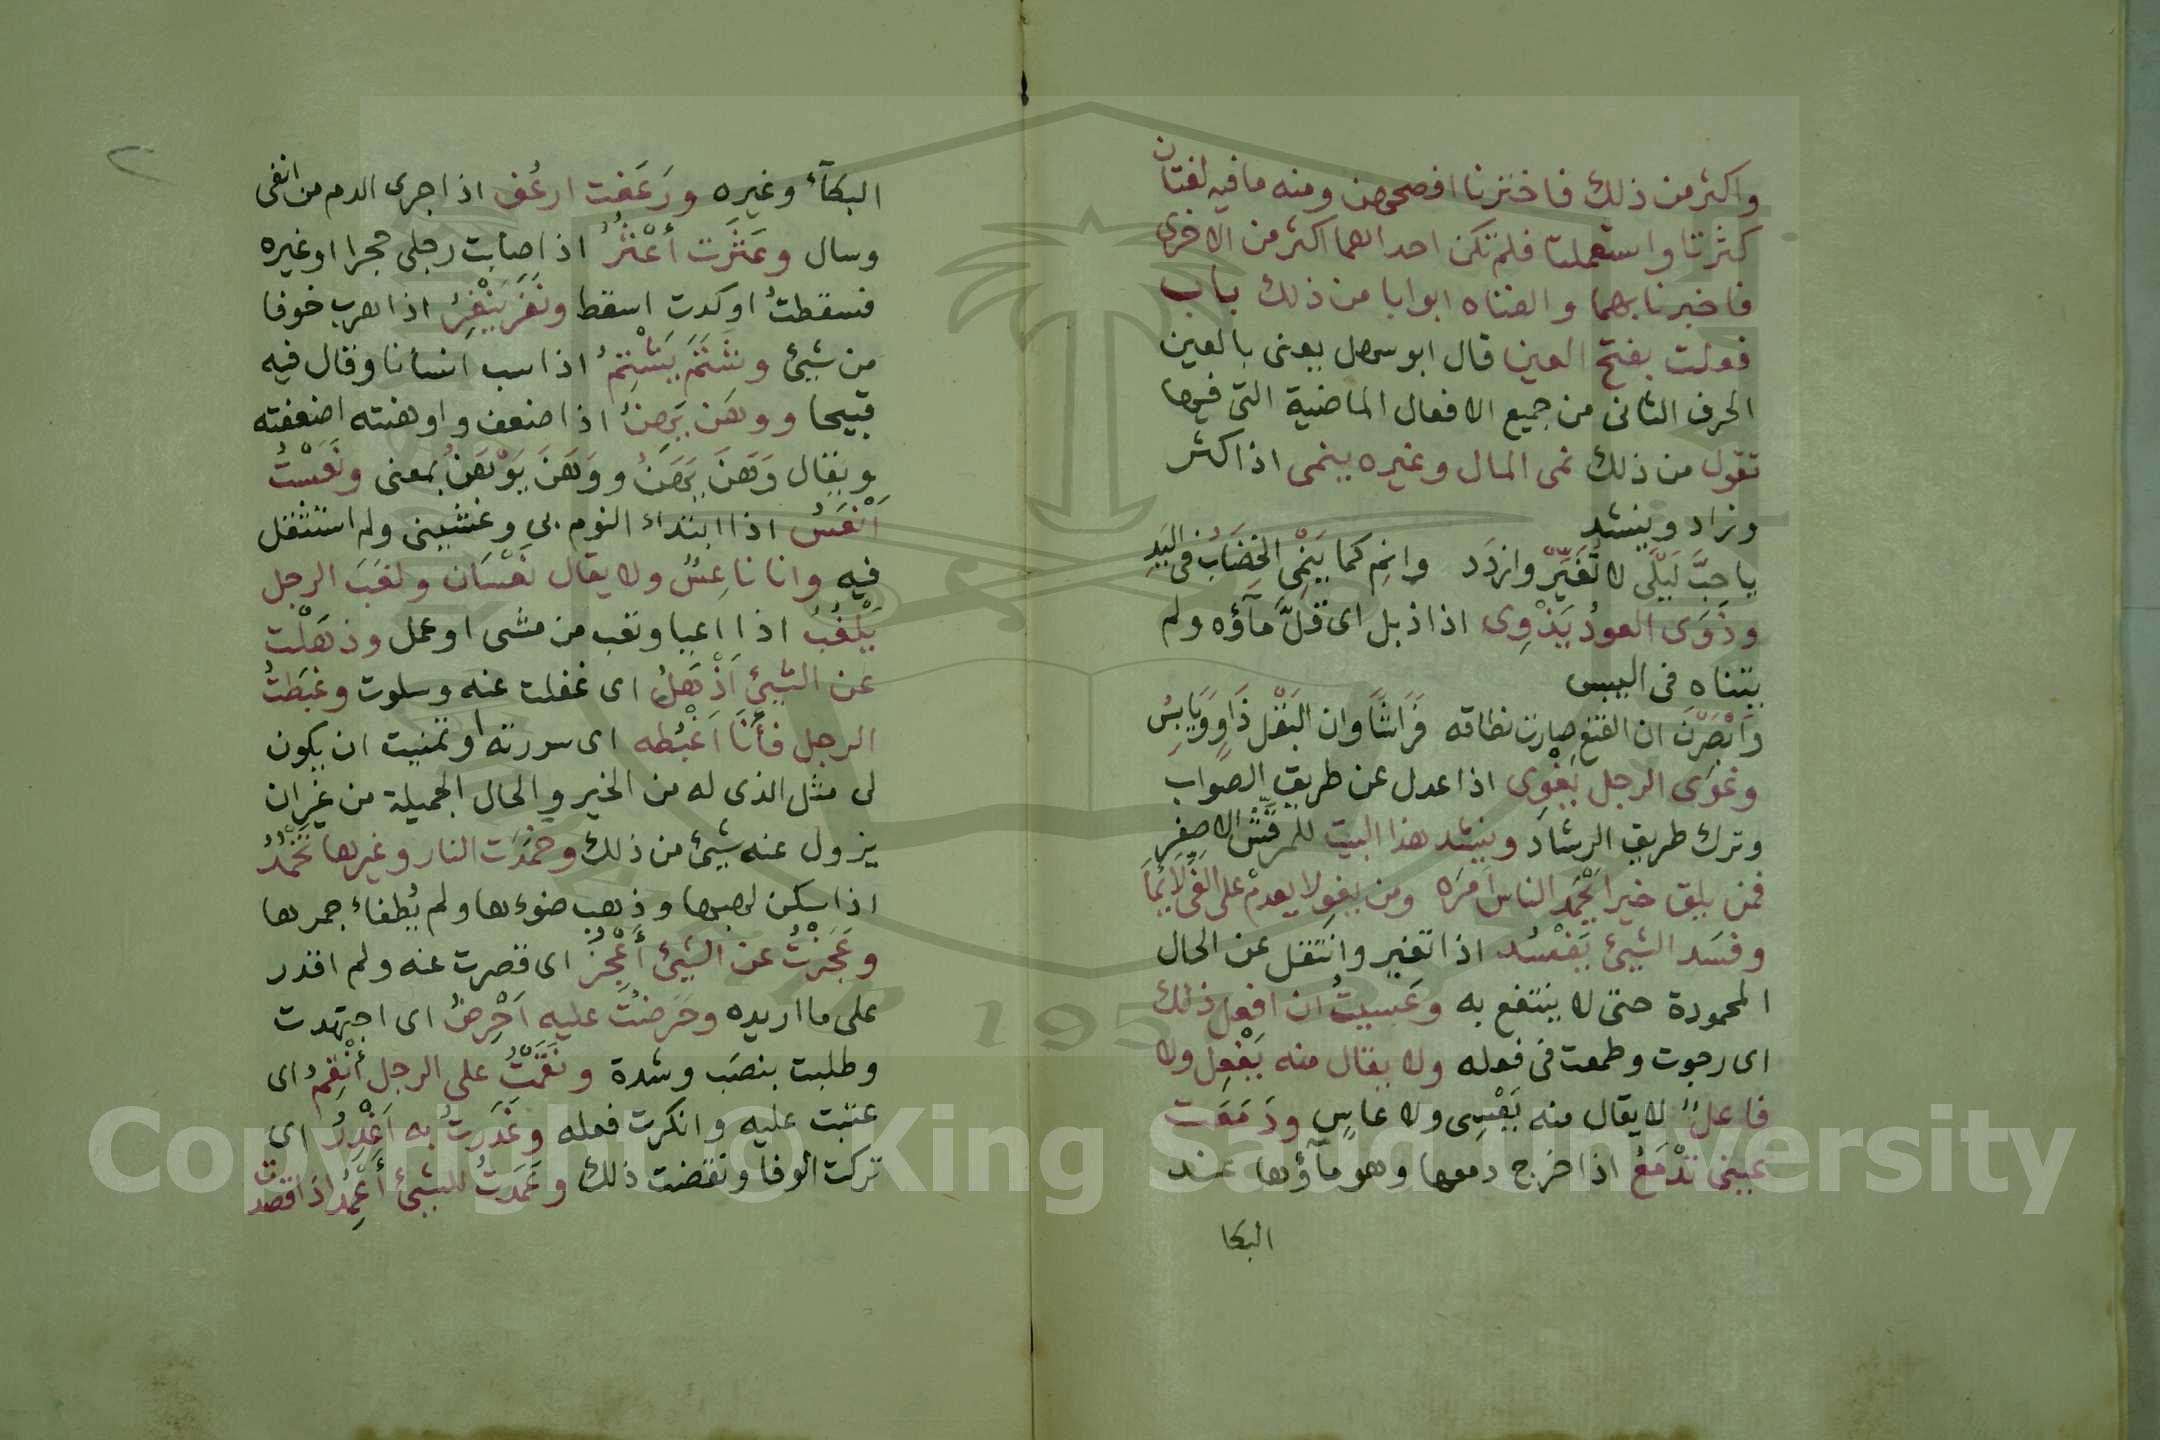 واكثر من ذلك فاخترنا افصحهن ومنه ما فيه لغتان
كثرتا واستعملتا فلم تكن احداهما اكثر من الاخرى
فاخبرنا بهما والفناه ابوابا من ذلك باب
فعلت بفتح العين قال ابو سهل يعنى بالعين
الحرف الثانى من جميع الافعال الماضية التى فيها
تقول من ذلك نمى المال وغيره ينمى اذا كثر
وزاد وينشد
يا حِبَّ لَيْلَى لا تُغَيَّرْ وازدَد وانمِ كما يَنْمِى الخِضَابُ فى اليَدِ
وذَوَى العودُ يَذْوِى اذا ذبل اى قلَّ مَآؤه ولم
يتناه فى اليبس
وَاَبْصَرْنَ ان القنع صارت نطاقه فَرَاشًا وان البَقْل ذَاوٍ وَيَابِسُ
وغوَى الرجل يَغْوِى اذا عدل عن طريق الصواب
وترك طريق الرشاد وينشد هذا البيت للمرقّش الاصغر
فمن يلق خيرا يَحْمَد الناس اَمرَه ومن يغوِ لا يعدمْ على الغَىّ لَايِمَا
وفسَد الشيئ يَفْسُد اذا تغير وانتقل عن الحال
المحمودة حتى لا ينتفع به وعَسيتُ ان افعل ذلك
اى رجوت وطمعت فى فعله ولا يقال منه يَفْعِل ولا
فاعلٌ لا يقال منه يَعْسِى ولا عاسٍ ودَمَعَت
عينى تدْمَعُ اذا خرج دمعها وهو مآؤها عند
البكا
٢
البكآء وغيره ورَعَفت ارعُف اذا جرى الدم من انفى
وسال وعَثَرَت أعْثُرُ اذا اصابت رجلى حجرا او غيره
فسقطتُ او كدت اسقط ونَفَرَ يَنْفِرُ اذا هرب خوفا
من شيئ وشَتَمَ يَشْتِمُ اذا سب انسانا وقال فيه
قبيحا ووهَن يَهِنُ اذا ضعف واوهنته اضعفته
ويقال وَهَنَ يَهَنُ ووَهَنَ يَوْهَنُ بمعنى ونَعَسْتُ
اَنْعَسُ اذا ابتداء النوم بى وغشينى ولم استثقل
فيه وانا ناعِسٌ ولا يقال نَعْسَان ولغَبَ الرجل
يَلْغُبُ اذا اعيا وتعب من مشى او عمل وذهَلْت
عن الشيئ اَذْهَلُ اى غفلت عنه وسلوت وغبَطتُ
الرجل فأنَا اَغْبِطه اى سررته او تمنيت ان يكون
لى مثل الذى له من الخير والحال الجميلة من غير ان
يزول عنه شيئ من ذلك وخمَدَت النار وغيرها تَخْمُدُ
اذا سكن لهبها وذهب ضوءها ولم يُطفاء جمرها
وعَجَزْتُ عن الشيئ أعْجِزَ اى قصرت عنه ولم اقدر
على ما اريده وحَرَصْتُ عليه اَحْرِصُ اى اجتهدت
وطلبت بنصَب وشدة ونَقَمْتُ على الرجل أنْقِمُ اى
عتبت عليه وانكرت فعله وغَدَرتُ به اَغْدِرُ اى
تركت الوفا ونقضت ذلك وعَمَدتُ للشيئ أعْمِدُ اذا قصدت
Copyright © King Saud University
195